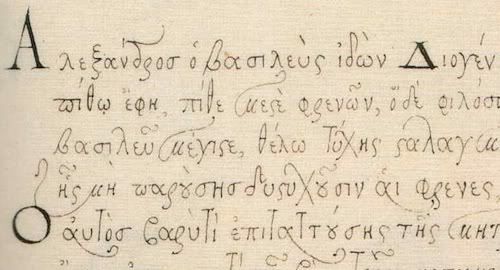 Αλεξάνδρος ὁ βασιλεὺς ἰδὼν Διογέν
πίθῳ ἔφη, πίθε μεστὲ φρενῶν, ὅ δὲ φιλόσ
βασιλεῦ μέγιστε, θέλω τύχης σταλαγμ
ἧς μὴ παρούσης δυστυχοῦσιν ἁι φρενες
Ο αὐτὸς βαρύ τι ἐπιταττούσης τῆς μητ